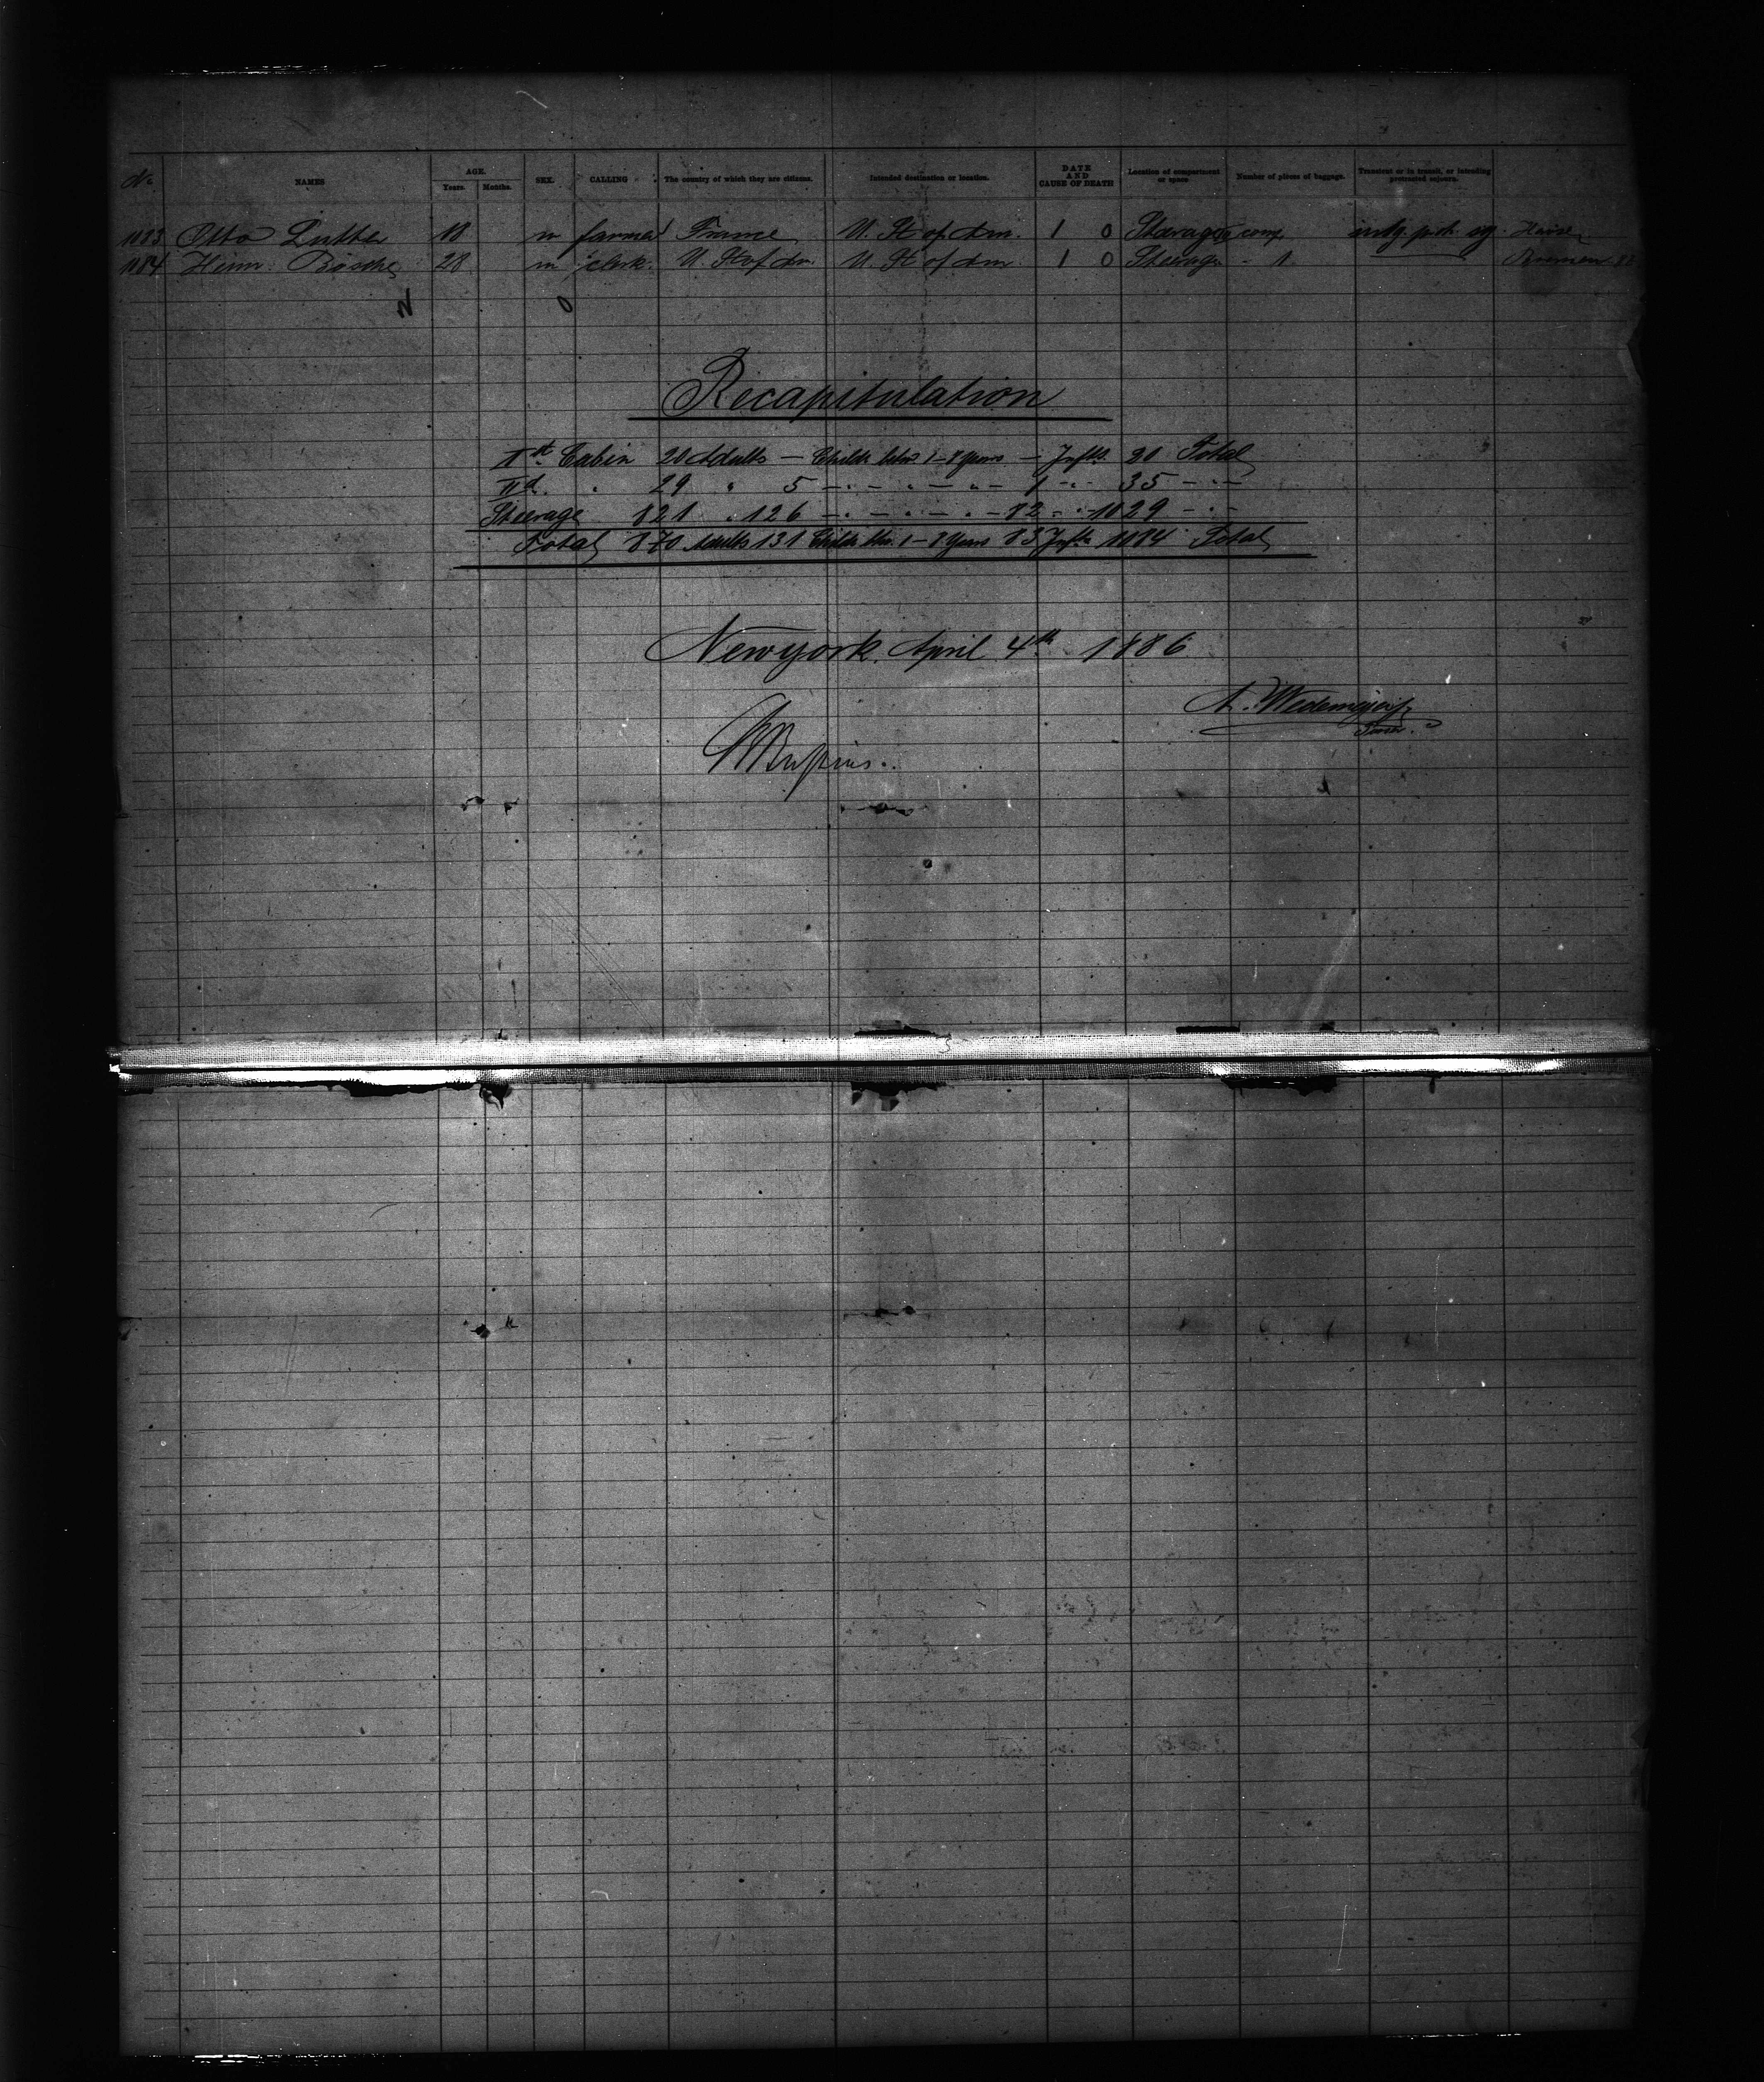 No. NAMES AGE. Years. Months. SEX. CALLING The country of which they are citizens. Intended destination or location. DATE AND CAUSE OF DEATH Location of compartment or space. Number of pieces of baggage. Transient or in transit, or intending protracted sojourn.
1083 Otto Luther 18 m farmer France U. St. of Am. 1 0 Steerage Havre
1084 Heinr. Bösche 28 m clerk. U. St of Am U. St of Am 1 0 Steerage - 1 Bremen
Recapitulation
Ist. Cabin 20 Adults — Childr. betw 1 – 8 years — Infts 20 Total
IId. " 29 " 5 — " — " — " — 1 - " 35 - " -
Steerage 821 " 126 — " — " — " — 82 - " - 1029 - " -
Total 870 Adults 131 Childr. btw. 1 – 8 years 83 Infts 1084 Total
Newyork. April 4th 1886
A. Wedemeyer